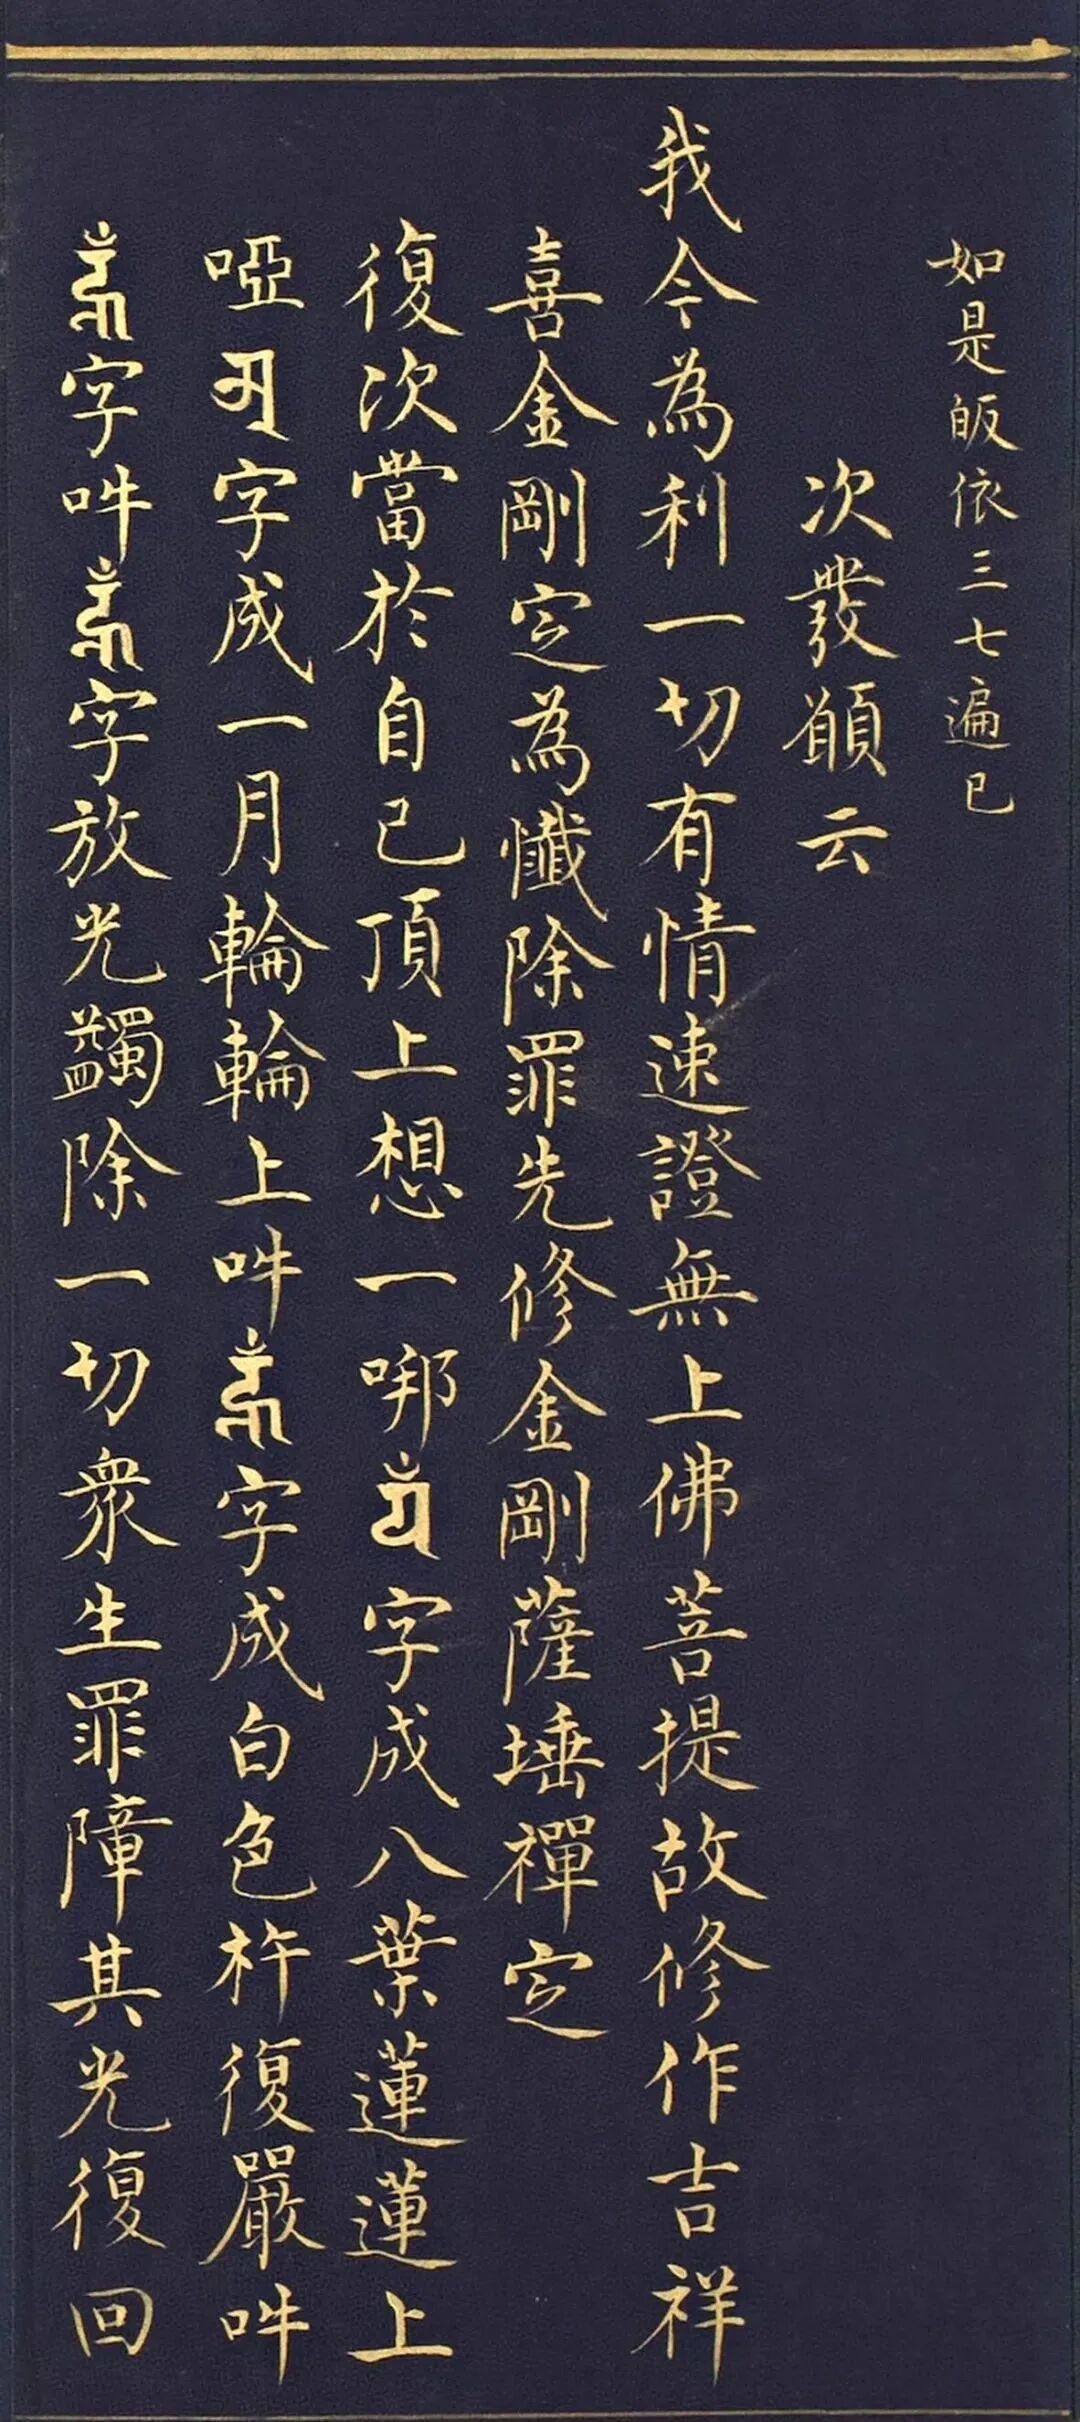 如是皈依三七遍已
次發願云
我今為利一切有情速證無上佛菩提故修作吉祥
喜金剛定為懺除罪先修金剛薩埵禪定
復次當於自己頂上想一哪字成八葉蓮蓮上
啞字成一月輪輪上吽字成白色杵復嚴吽
字吽字放光蠲除一切眾生罪障其光復回